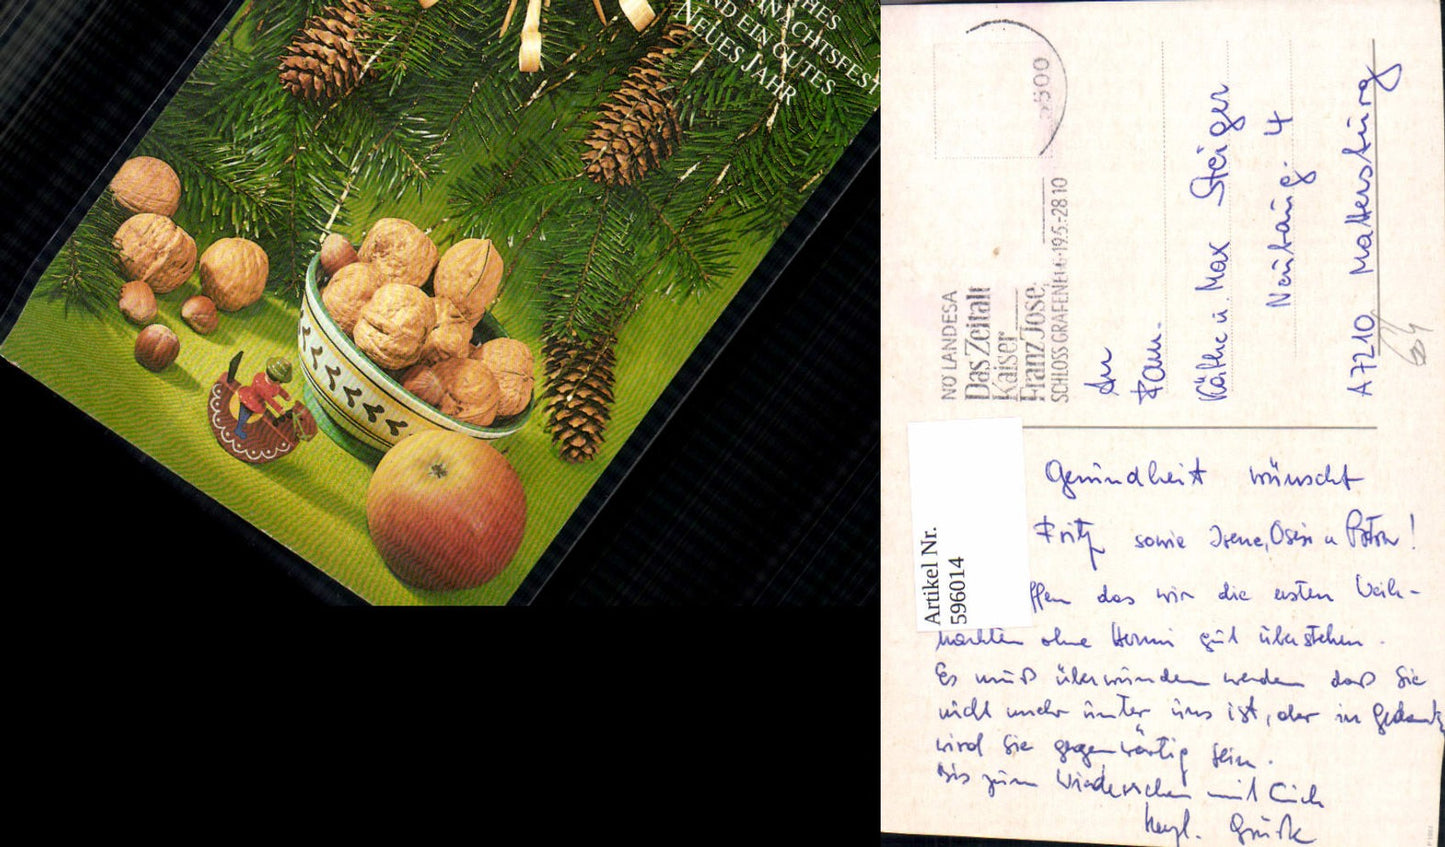 HES
NACHTSFEST
ND EIN GUTES
NEUES JAHR
3300
NÖ LANDESA
Das Zeitalt
Kaiser
Franz Jose
SCHLOSS GRAFENEGG·19.5.-28 10
An
Fam.
Käthe u. Max Steiger
Neubaug. 4
A 7210 Mattersburg
Artikel Nr.
596014
Gesundheit wünscht
Fritz sowie Irene, u
ffen das wir die ersten Weih-
nachten ohne Hermi gut überstehen.
Es muß überwunden werden daß Sie
nicht mehr unter uns ist, aber in Gedank
wird Sie gegenwärtig sein.
Bis zum Wiedersehen mit Euch
herzl. Grüße